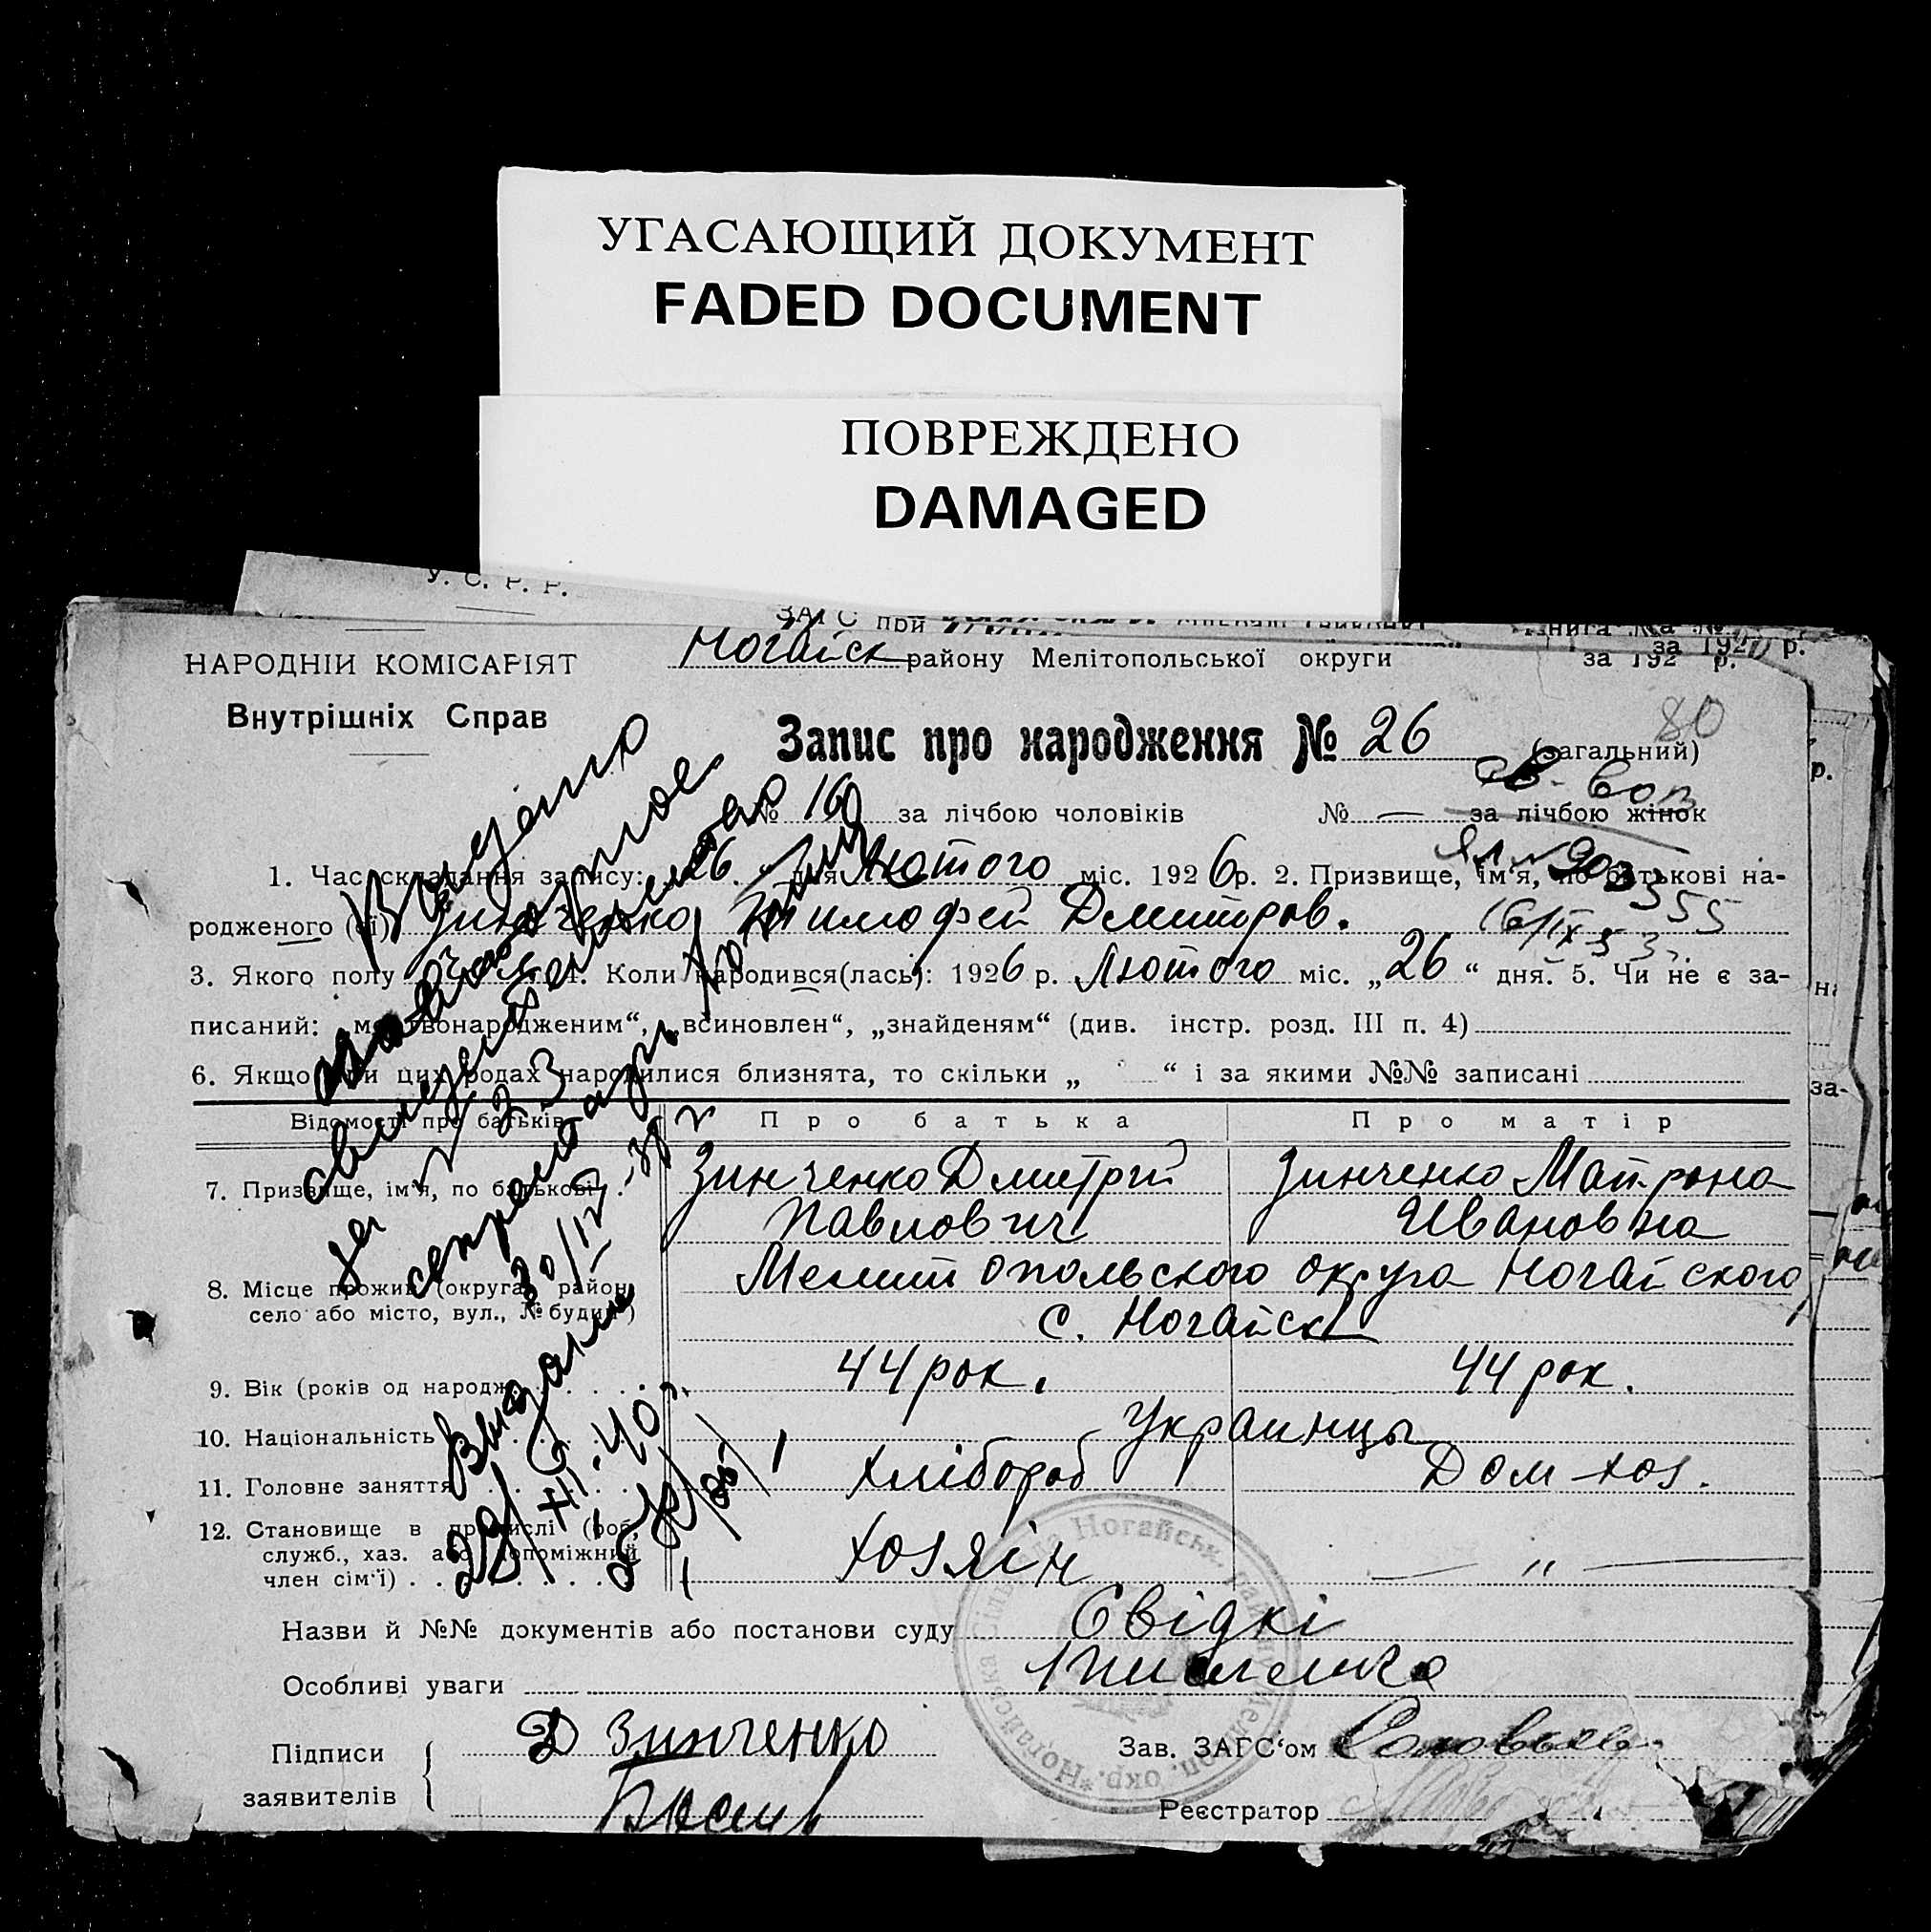 УГАСАЮЩИЙ ДОКУМЕНТ
FADED DOCUMENT
ПОВРЕЖДЕНО
DAMAGED
У. С. Р. Р.
ЗАГС при
Книга №
за 192 р.
НАРОДНІЙ КОМІСАРІЯТ
Внутрішніх Справ
Ногайск району Мелітопольської округи за 192 р.
80
Запис про народження № 26 (загальний)
№ 160 за лічбою чоловіків № — за лічбою жінок
1. Час складання запису: 26 дня Лютого міс. 1926 р. 2. Призвище, ім'я, по батькові на-
родженого (ої) Зинченко Тимофей Дмитров.
16/IX 53
3. Якого полу 4. Коли народився(лась): 1926 р. Лютого міс. „26“ дня. 5. Чи не є за-
писаний: „мертвонародженим“, „всиновлен“, „знайденям“ (див. інстр. розд. III п. 4)
6. Якщо при цих родах народилися близнята, то скільки „ “ і за якими №№ записані
Відомості про батьків Про батька Про матір
7. Призвище, ім'я, по батькові Зинченко Дмитрий Зинченко Матрона
Павлович Ивановна
8. Місце прожив. (округа, район, Мелитопольского округа Ногайского
село або місто, вул., № будин.) с. Ногайск
9. Вік (років од народж. 44 рок. 44 рок.
10. Національність Украинцы
11. Головне заняття Хлібороб Дом хоз.
12. Становище в промислі (роб, Хозяін — „ —
служб., хаз. або допоміжний
член сім'ї)
Назви й №№ документів або постанови суду Свідкі
Особливі уваги
Підписи Д Зинченко Зав. ЗАГС'ом
заявителів Реєстратор
Видано
повторное
свидетельство
за № 23
30/12-38 г
Выдано
29/XII-40 г.